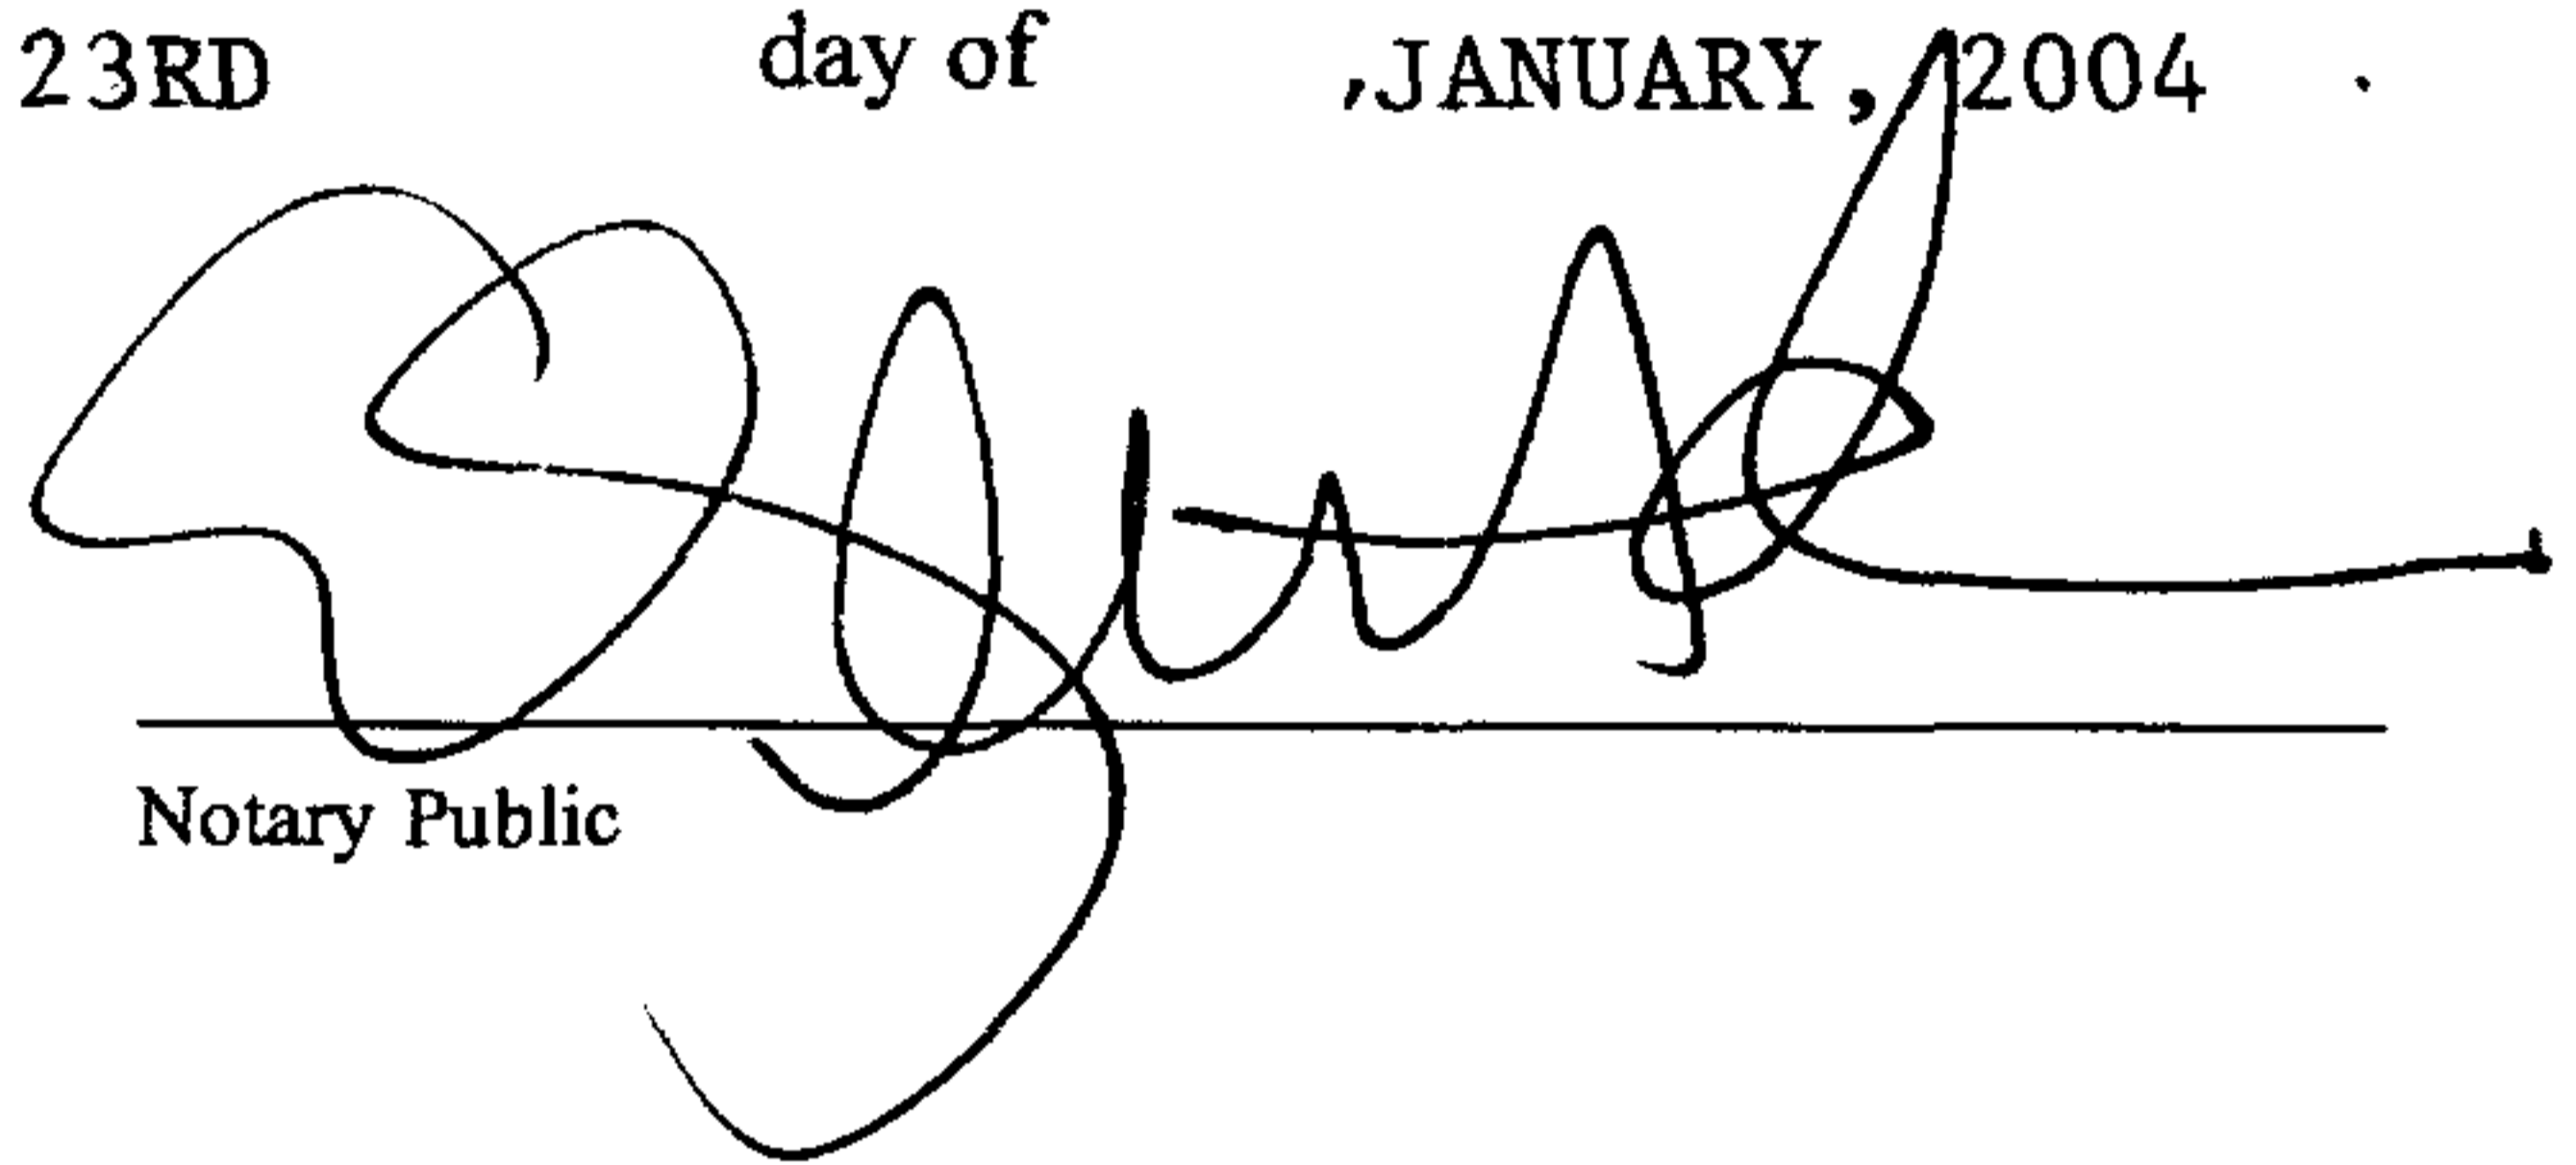 23RD day of ,JANUARY, 2004 .
Notary Public